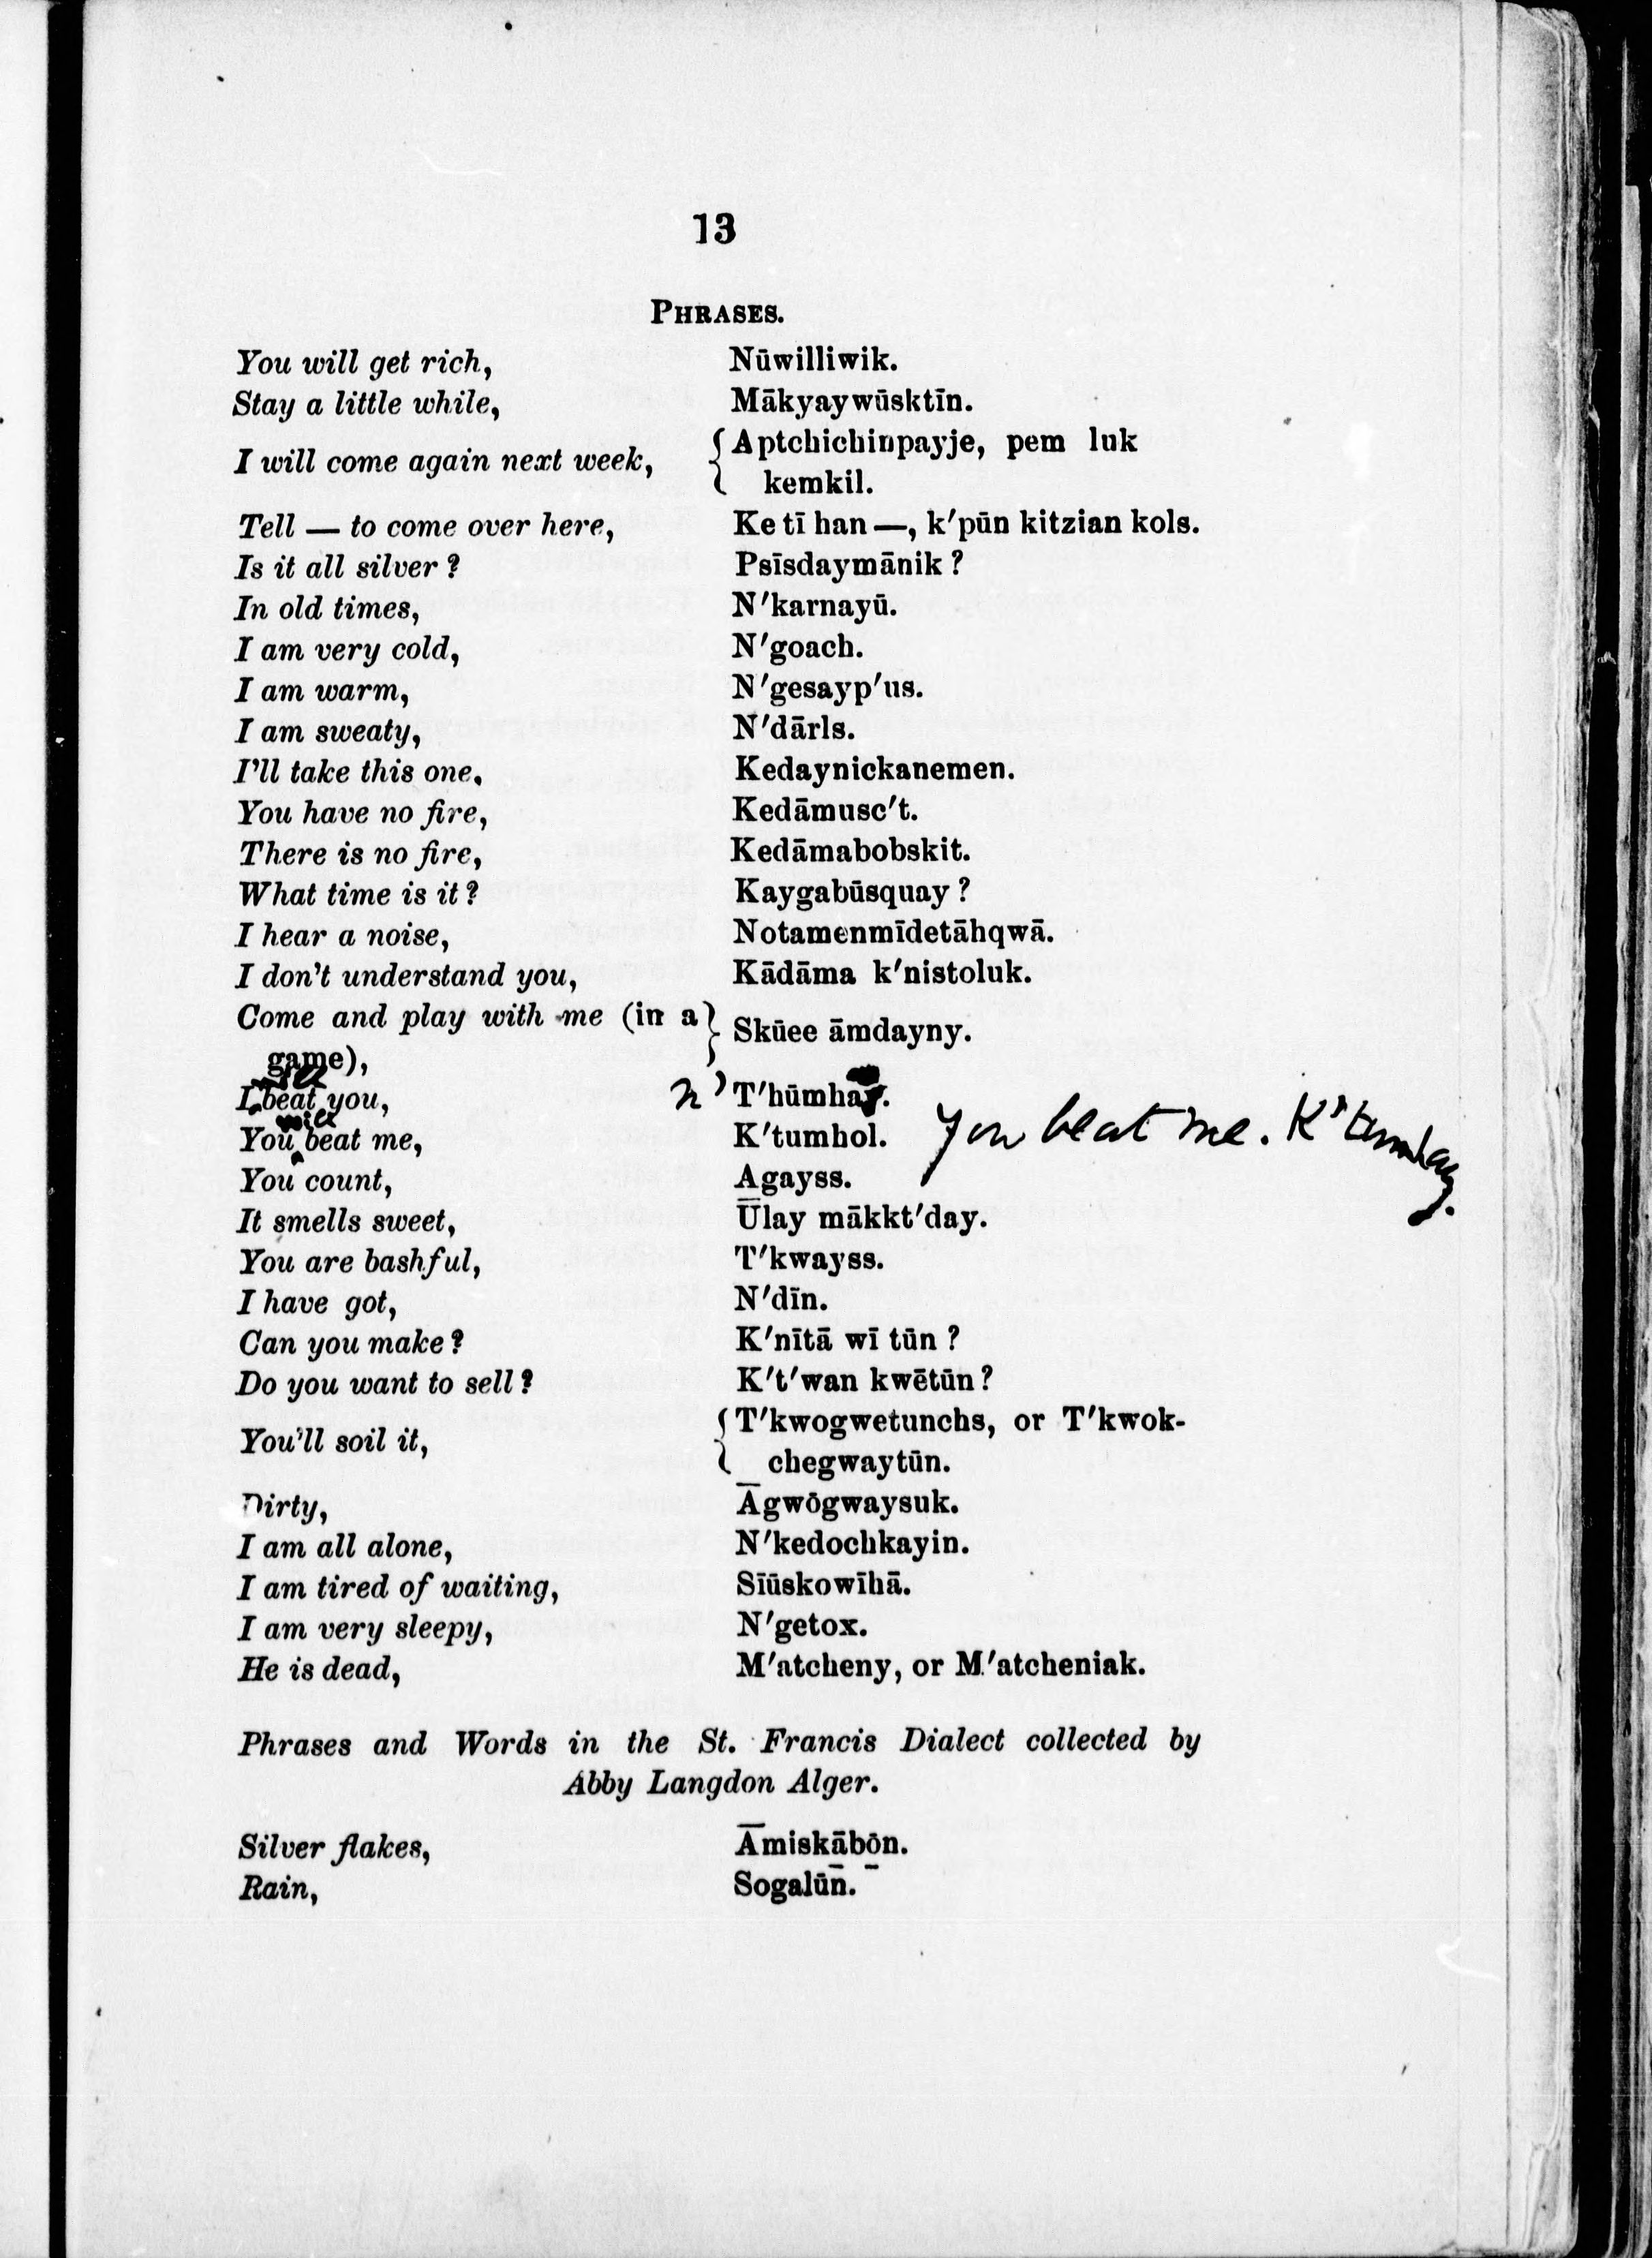 13
PHRASES.
You will get rich, Nūwilliwik.
Stay a little while, Mākyaywūsktīn.
I will come again next week, { Aptchichinpayje, pem luk
kemkil.
Tell — to come over here, Ke tī han —, k′pūn kitzian kols.
Is it all silver? Psīsdaymānik?
In old times, N′karnayū.
I am very cold, N′goach.
I am warm, N′gesayp′us.
I am sweaty, N′dārls.
I'll take this one, Kedaynickanemen.
You have no fire, Kedāmusc′t.
There is no fire, Kedāmabobskit.
What time is it? Kaygabūsquay?
I hear a noise, Notamenmīdetāhqwā.
I don't understand you, Kādāma k′nistoluk.
Come and play with me (in a } Skūee āmdayny.
game),
I beat you, n' T′hūmhay.
will
You beat me, K′tumhol. You beat me. K'tumhay.
You count, Agayss.
It smells sweet, Ūlay mākkt′day.
You are bashful, T′kwayss.
I have got, N′dīn.
Can you make? K′nītā wī tūn?
Do you want to sell? K′t′wan kwētūn?
You'll soil it, { T′kwogwetunchs, or T′kwok-
chegwaytūn.
Dirty, Āgwōgwaysuk.
I am all alone, N′kedochkayin.
I am tired of waiting, Sīūskowīhā.
I am very sleepy, N′getox.
He is dead, M′atcheny, or M′atcheniak.
Phrases and Words in the St. Francis Dialect collected by
Abby Langdon Alger.
Silver flakes, Āmiskābōn.
Rain, Sogalūn̄.